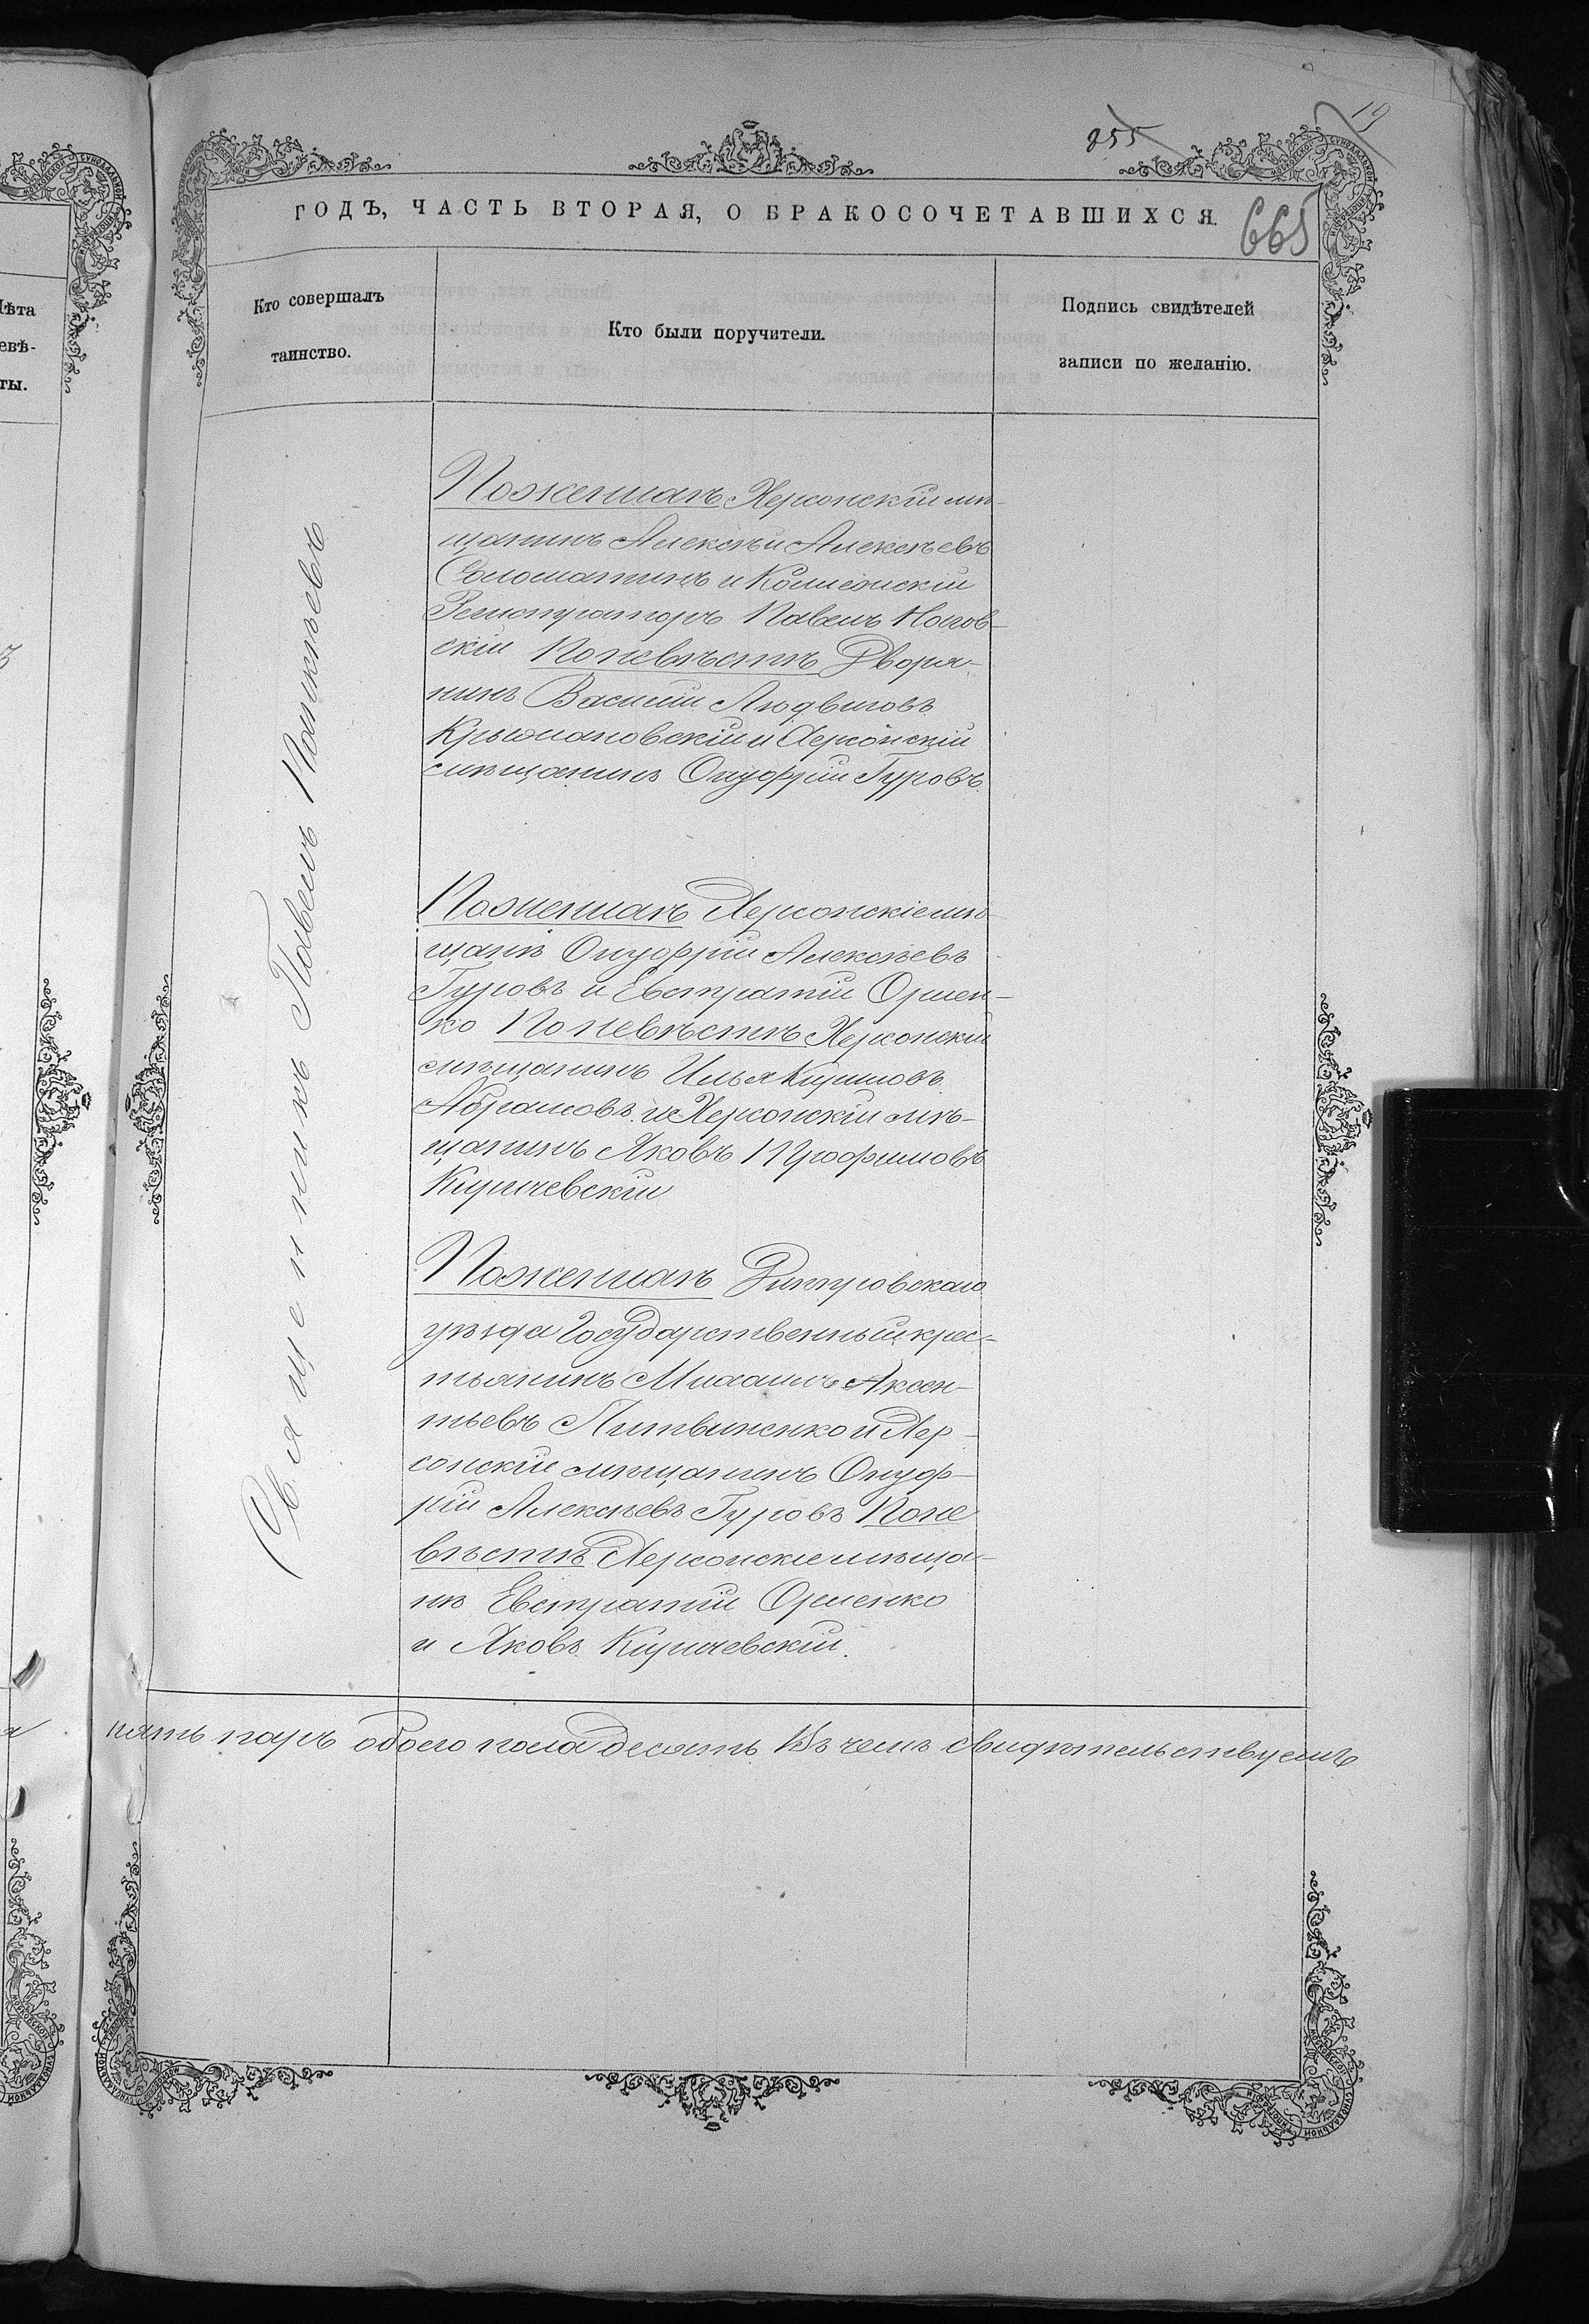 255
19
ГОДЪ, ЧАСТЬ ВТОРАЯ, О БРАКОСОЧЕТАВШИХСЯ.
665
Кто совершалъ
таинство.
Кто были поручители.
Подпись свидѣтелей
записи по желанію.
Священникъ Павелъ
По женихѣ Херсонскій мѣ-
щанинъ Алексѣй Алексѣевъ
Соломатинъ и Коллежскій
Регистраторъ Павелъ
скій По невѣстѣ Дворя-
нинъ Василій Людвиговъ
Крыжановскій и Херсонскій
мѣщанинъ Онуфрій Гуровъ.
По женихѣ Херсонскіе мѣ-
щане Онуфрій Алексѣевъ
Гуровъ и Евстратій Ормен-
ко По невѣстѣ Херсонскій
мѣщанинъ Илья Кириловъ
Абрамовъ и Херсонскій мѣ-
щанинъ Яковъ Трофимовъ
Киричевскій
По женихѣ Дмитровскаго
уѣзда Государственный крес-
тьянинъ Михаилъ Аксен-
тьевъ Литвиненко и Хер-
сонскій мѣщанинъ Онуф-
рій Алексѣевъ Гуровъ По не
вѣстѣ Херсонскіе мѣща-
не Евстратій Орменко
и Яковъ Киричевскій.
пять паръ обоего пола десять Въ чемъ свидѣтельствуемъ